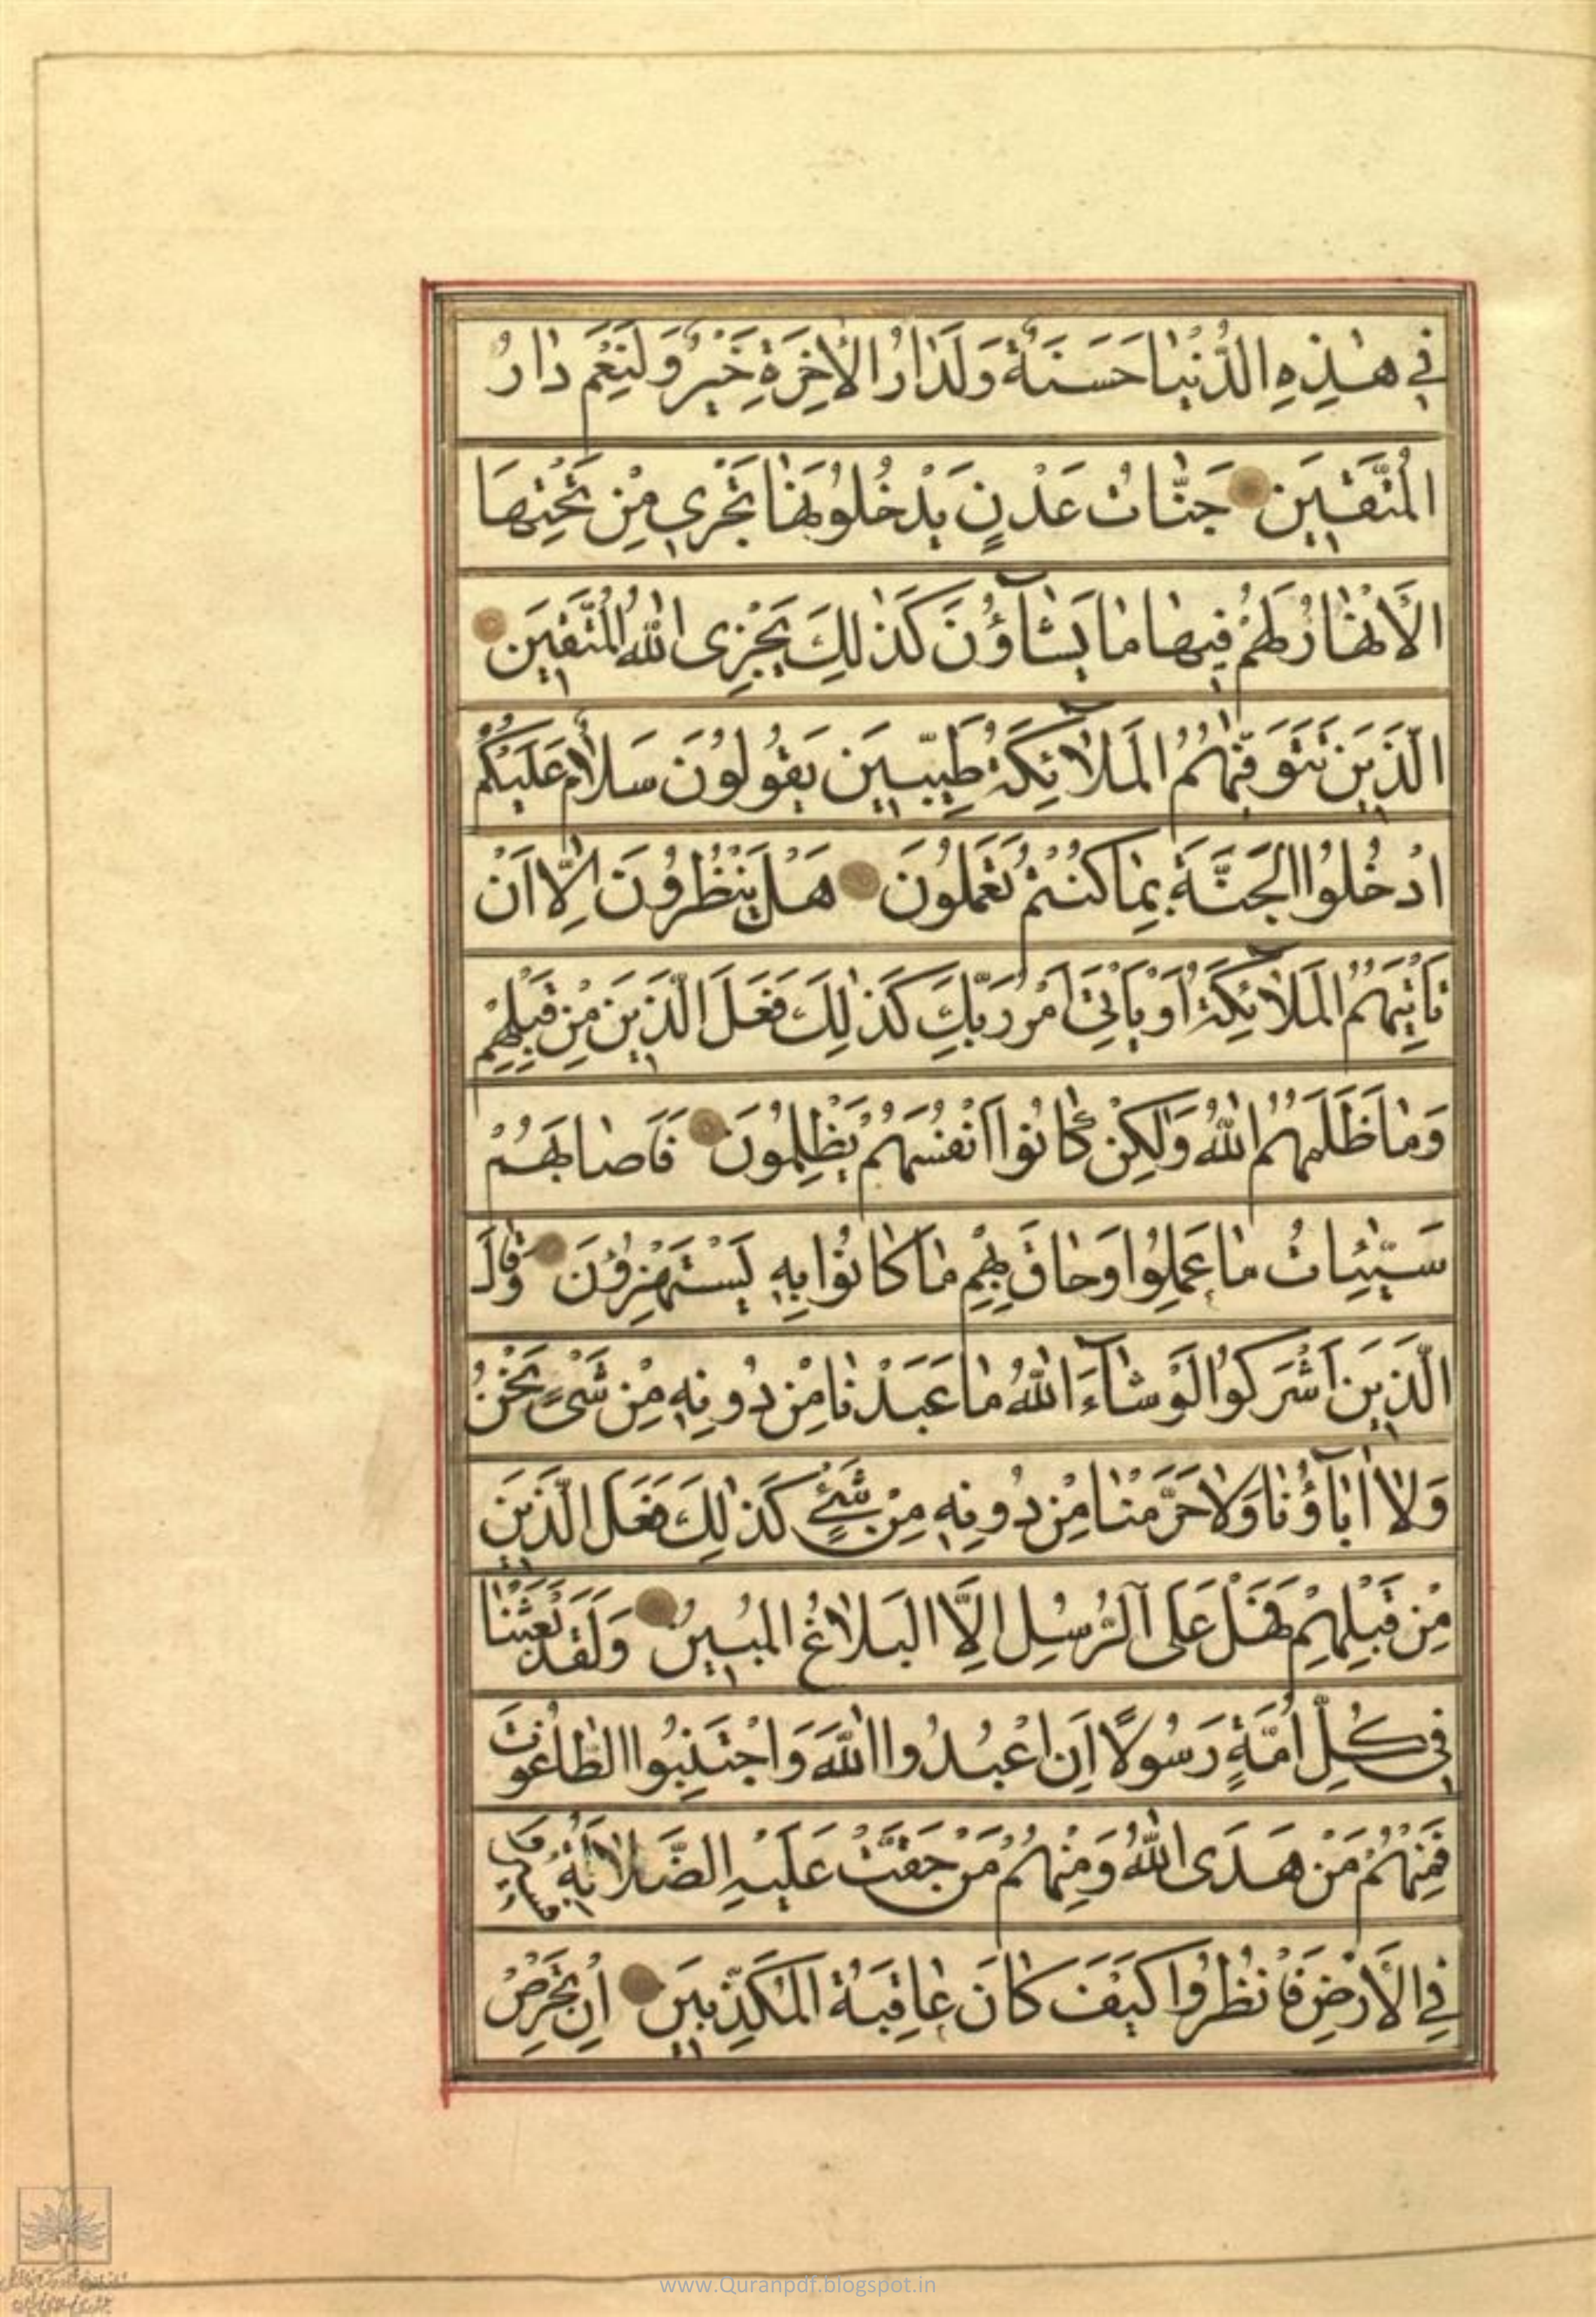 في هٰذِهِ الدُّنْيٰا حَسَنَةٌ وَلَدٰارُ الْاٰخِرَةِ خَيْرٌ وَلَنِعْمَ دٰارُ
الْمُتَّقينَ جَنّٰاتُ عَدْنٍ يَدْخُلُونَهٰا تَجْري مِنْ تَحْتِهَا
الْاَنْهٰارُ لَهُمْ فيهٰا مٰا يَشٰآؤُنَ كَذٰلِكَ يَجْزِى اللّٰهُ الْمُتَّقينَ
الَّذينَ تَتَوَفّٰيهُمُ الْمَلٰٓائِكَةُ طَيِّبينَ يَقُولُونَ سَلٰامٌ عَلَيْكُمْ
ادْخُلُوا الْجَنَّةَ بِمٰا كُنْتُمْ تَعْمَلُونَ هَلْ يَنْظُرُونَ اِلّٰا اَنْ
تَاْتِيَهُمُ الْمَلٰٓائِكَةُ اَوْ يَاْتِيَ اَمْرُ رَبِّكَ كَذٰلِكَ فَعَلَ الَّذينَ مِنْ قَبْلِهِمْ
وَمٰا ظَلَمَهُمُ اللّٰهُ وَلٰكِنْ كٰانُوا اَنْفُسَهُمْ يَظْلِمُونَ فَاَصٰابَهُمْ
سَيِّئٰاتُ مٰا عَمِلُوا وَحٰاقَ بِهِمْ مٰا كٰانُوا بِهِ يَسْتَهْزِؤُنَ وَقٰالَ
الَّذينَ اَشْرَكُوا لَوْ شٰآءَ اللّٰهُ مٰا عَبَدْنٰا مِنْ دُونِهِ مِنْ شَىْءٍ نَحْنُ
وَلٰا اٰبٰآؤُنٰا وَلٰا حَرَّمْنٰا مِنْ دُونِهِ مِنْ شَيْءٍ كَذٰلِكَ فَعَلَ الَّذينَ
مِنْ قَبْلِهِمْ فَهَلْ عَلَى الرُّسُلِ اِلَّا الْبَلٰاغُ الْمُبينُ وَلَقَدْ بَعَثْنٰا
في كُلِّ اُمَّةٍ رَسُولًا اَنِ اعْبُدُوا اللّٰهَ وَاجْتَنِبُوا الطّٰاغُوتَ
فَمِنْهُمْ مَنْ هَدَى اللّٰهُ وَمِنْهُمْ مَنْ حَقَّتْ عَلَيْهِ الضَّلٰالَةُ فَسيرُوا
فِي الْاَرْضِ فَانْظُرُوا كَيْفَ كٰانَ عٰاقِبَةُ الْمُكَذِّبينَ اِنْ تَحْرِصْ
www.Quranpdf.blogspot.in